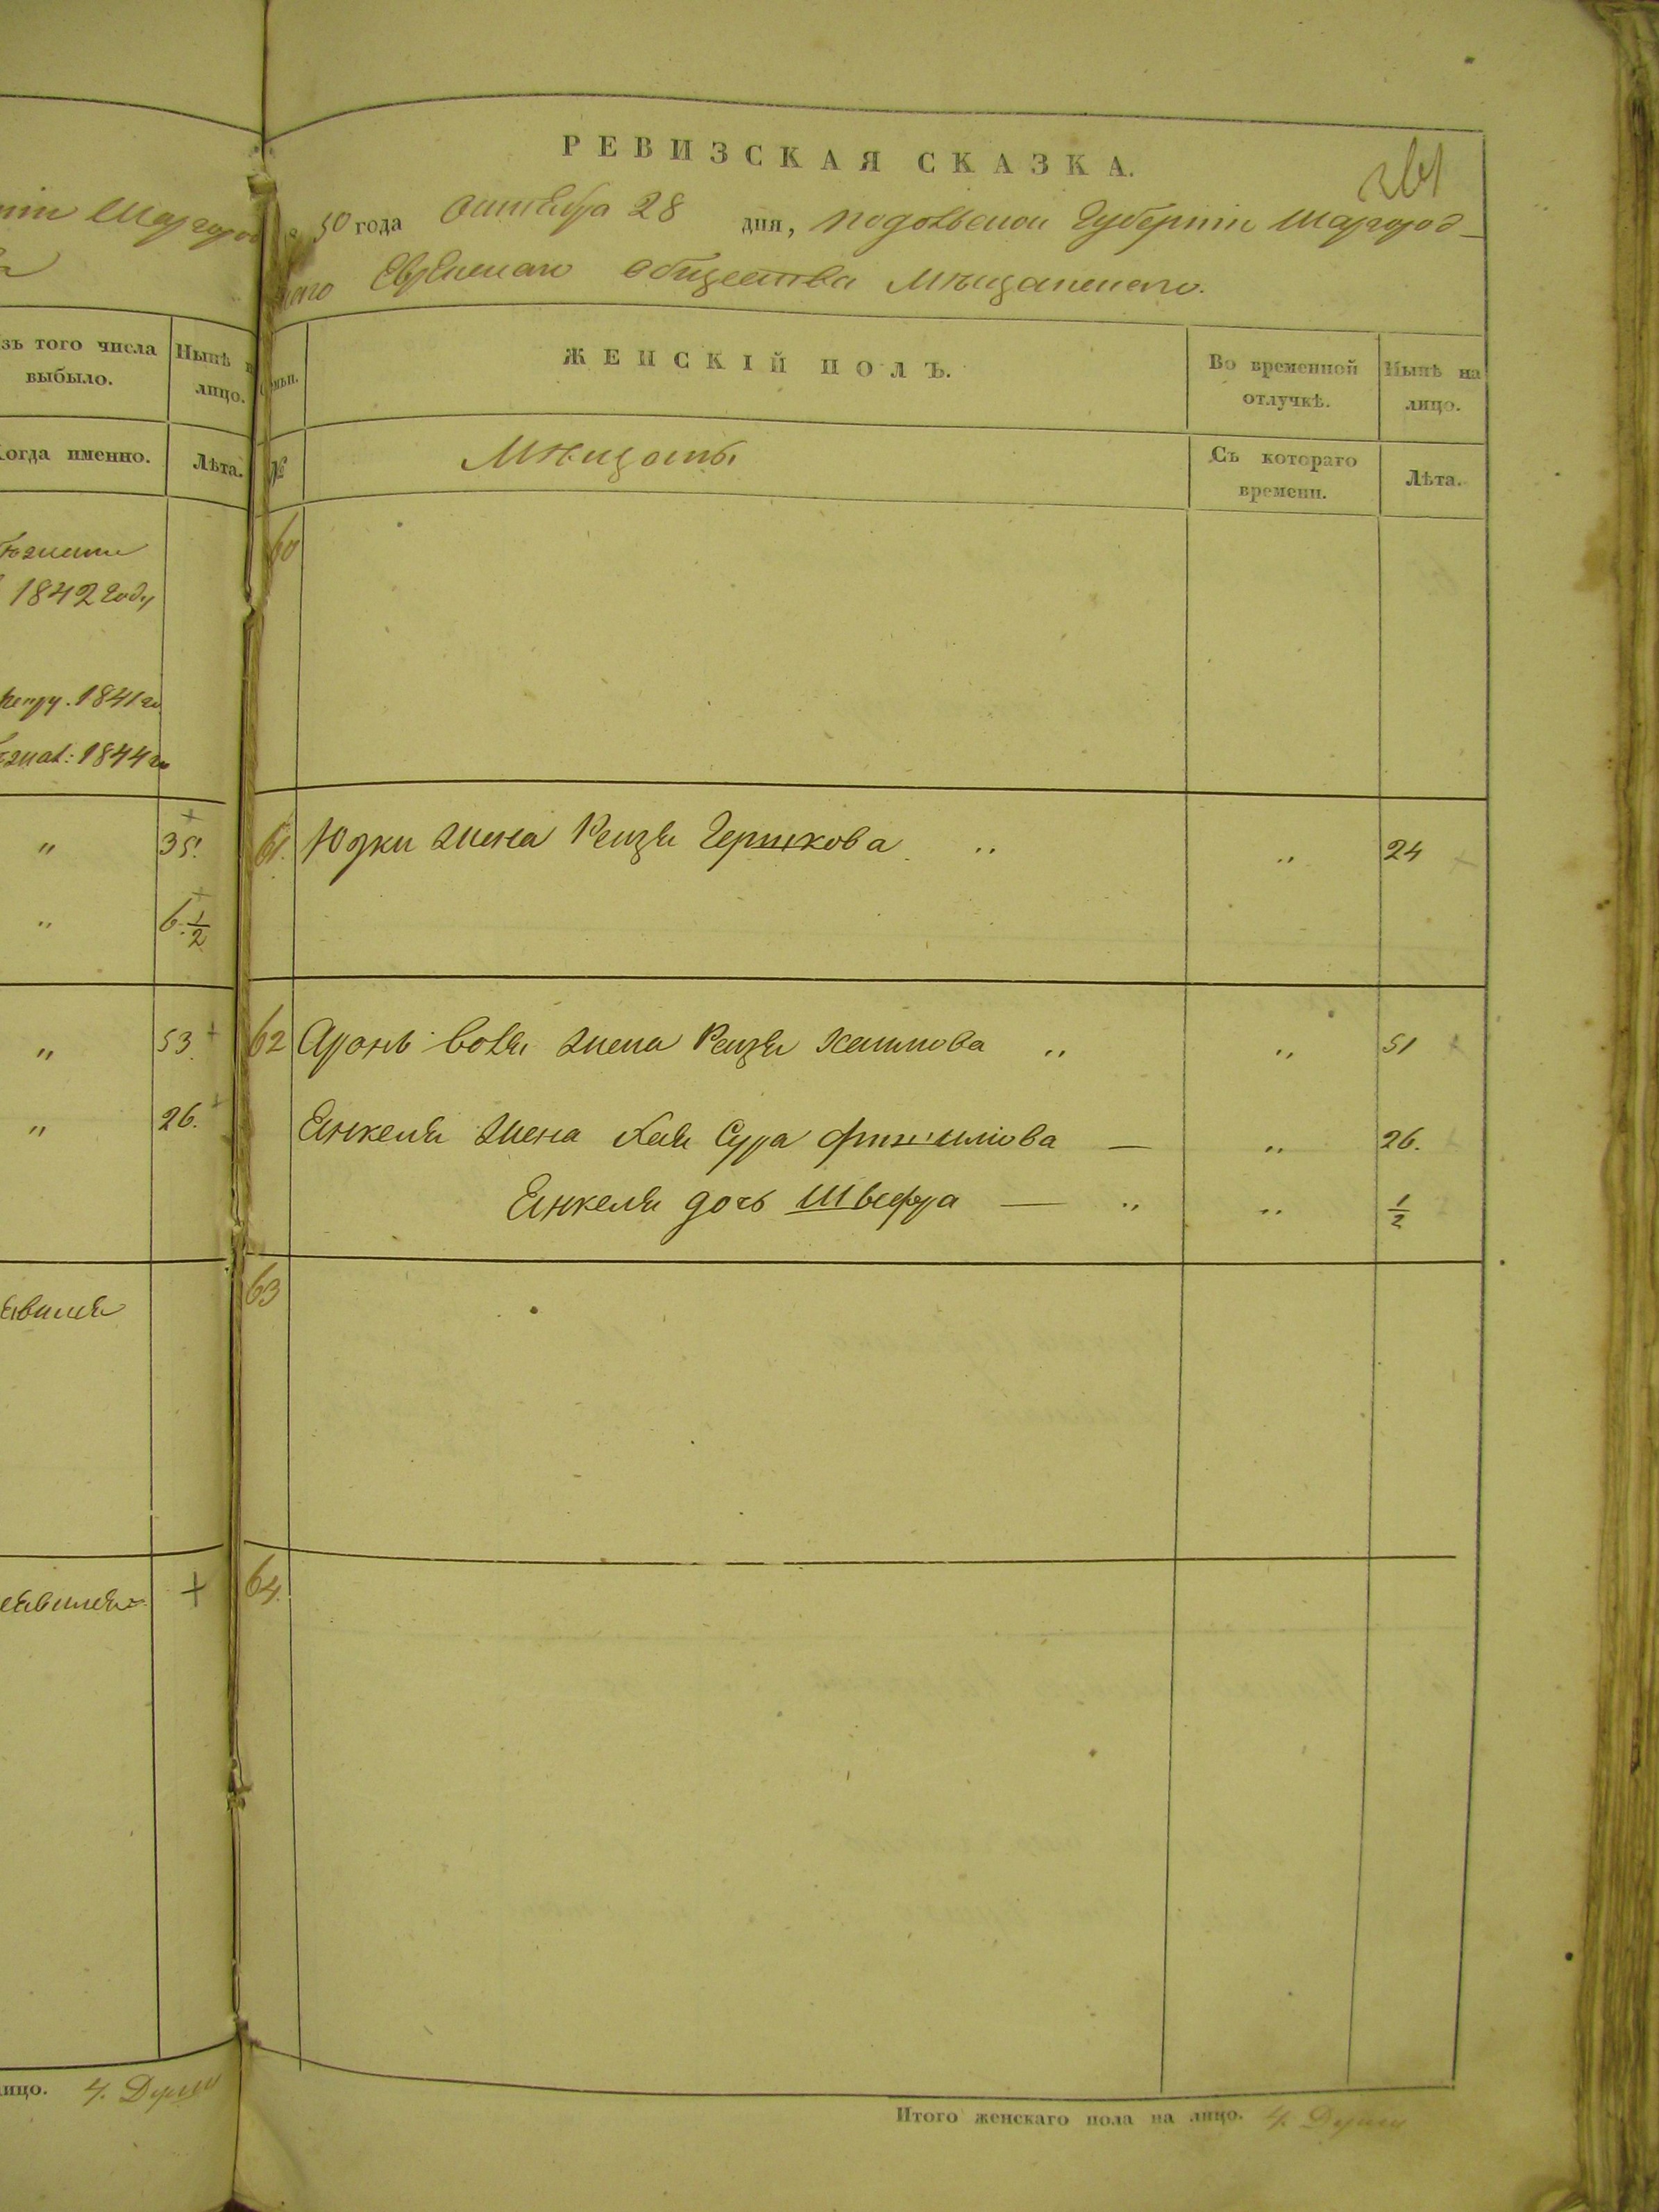 РЕВИЗСКАЯ СКАЗКА.
50 года Октября 28 дня, Подольской Губерніи Шаргород-
Еврейскаго общества Мѣщанскаго.
зъ того числа выбыло.
Нынѣ лицо.
огда именно.
Лѣта.
1842 году
1841 го
1844 го
" 35.
" 6 1/2
" 53.
" 26.
лицо. 4. Души
№
ЖЕНСКІЙ ПОЛЪ.
Во временной отлучкѣ.
Нынѣ на лицо.
Мѣщаны
Съ котораго времени.
Лѣта.
60
61. Юзки жена Рейзя Гершкова " " 24
62 Аронъ Воля жена Рейзя Хаимова " " 51
Янкеля жена Хая Сура — " 26.
Янкеля дочь Шьефра — " " 1/2
63
64.
Итого женскаго пола на лицо. 4. Души